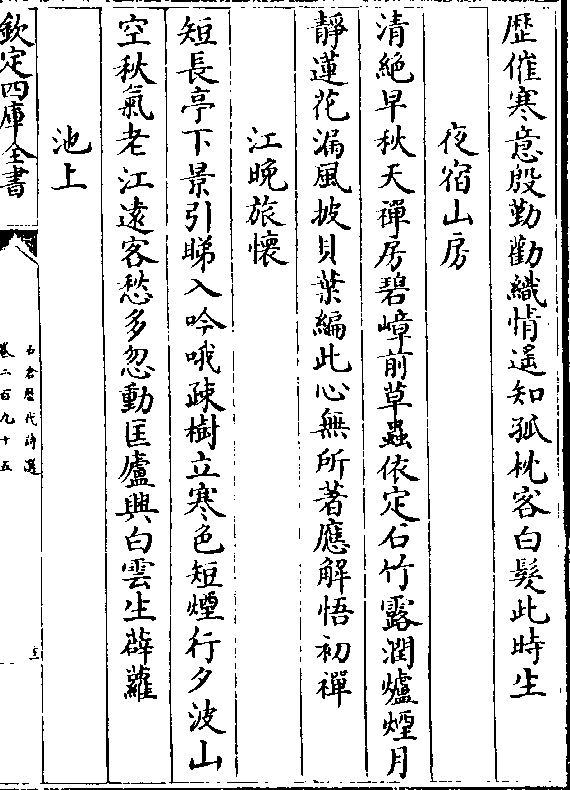 歴催寒意殷勤勸織情遥知孤枕客白髮此時生
夜宿山房
清絶早秋天禪房碧嶂前草蟲依定石竹露潤爐煙月
靜蓮花漏風披貝葉編此心無所著應解悟初禪
江晚旅懷
短長亭下景引睇入吟哦疎樹立寒色短煙行夕波山
空秋氣老江遠客愁多忽動匡廬興白雲生薜蘿
池上
欽定四庫全書
石倉歴代詩選
卷二百九十五